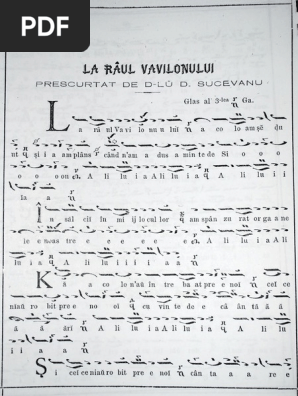 PDF
LA RÂUL VAVILONULUI
PRESCURTAT DE D-LŬ D. SUCEVANU
Glas al 3-lea Ga.
L a râ ul Va vi lo nu lui a co lo am șĕ du
ut și i a am plâns când n'am a dus a min te de Si o o o
o o o on A li lu i a A li lu i a A li lu i i
la a
Î n săl cii în mij lo cul lor am spân zu rat or ga a ne
le e noas tre e e e e e A li lu i a A li
lu i a A li lu i i i i a a
K ă a co lo n'aă în tre bat pre e noi cei ce
ne au ro bit pre e no oi cu vin te de e că ân tă ă ă
ă ă ări A li lu i a A li lu i a A li lu i
i i a a
Ș i cei ce ne au ro bit pre e noi cân ta a a re e